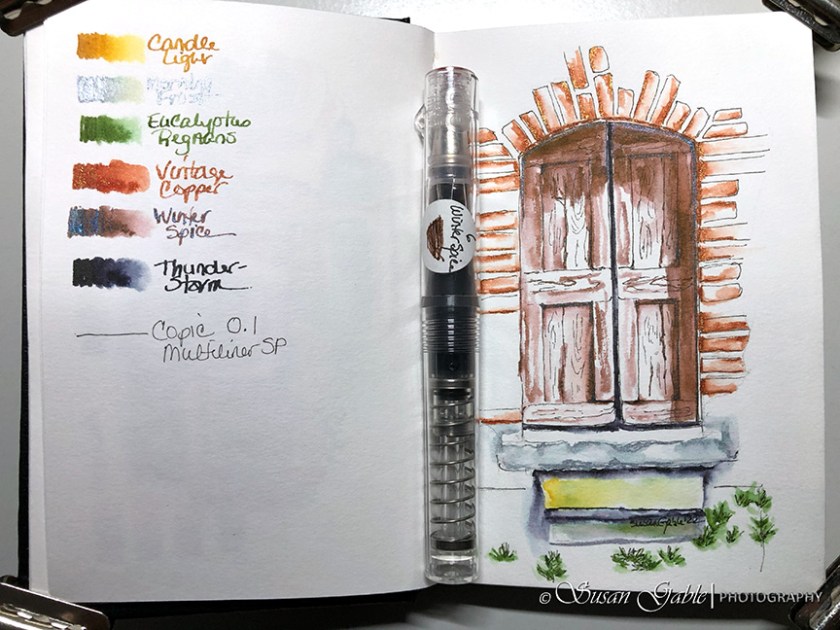 Candle
Light
Eucalyptus
Regnans
Vintage
Copper
Winter
Spice
Thunder-
Storm
Copic 0.1
Multiliner SP
Winter Spice
© Susan Gable | PHOTOGRAPHY